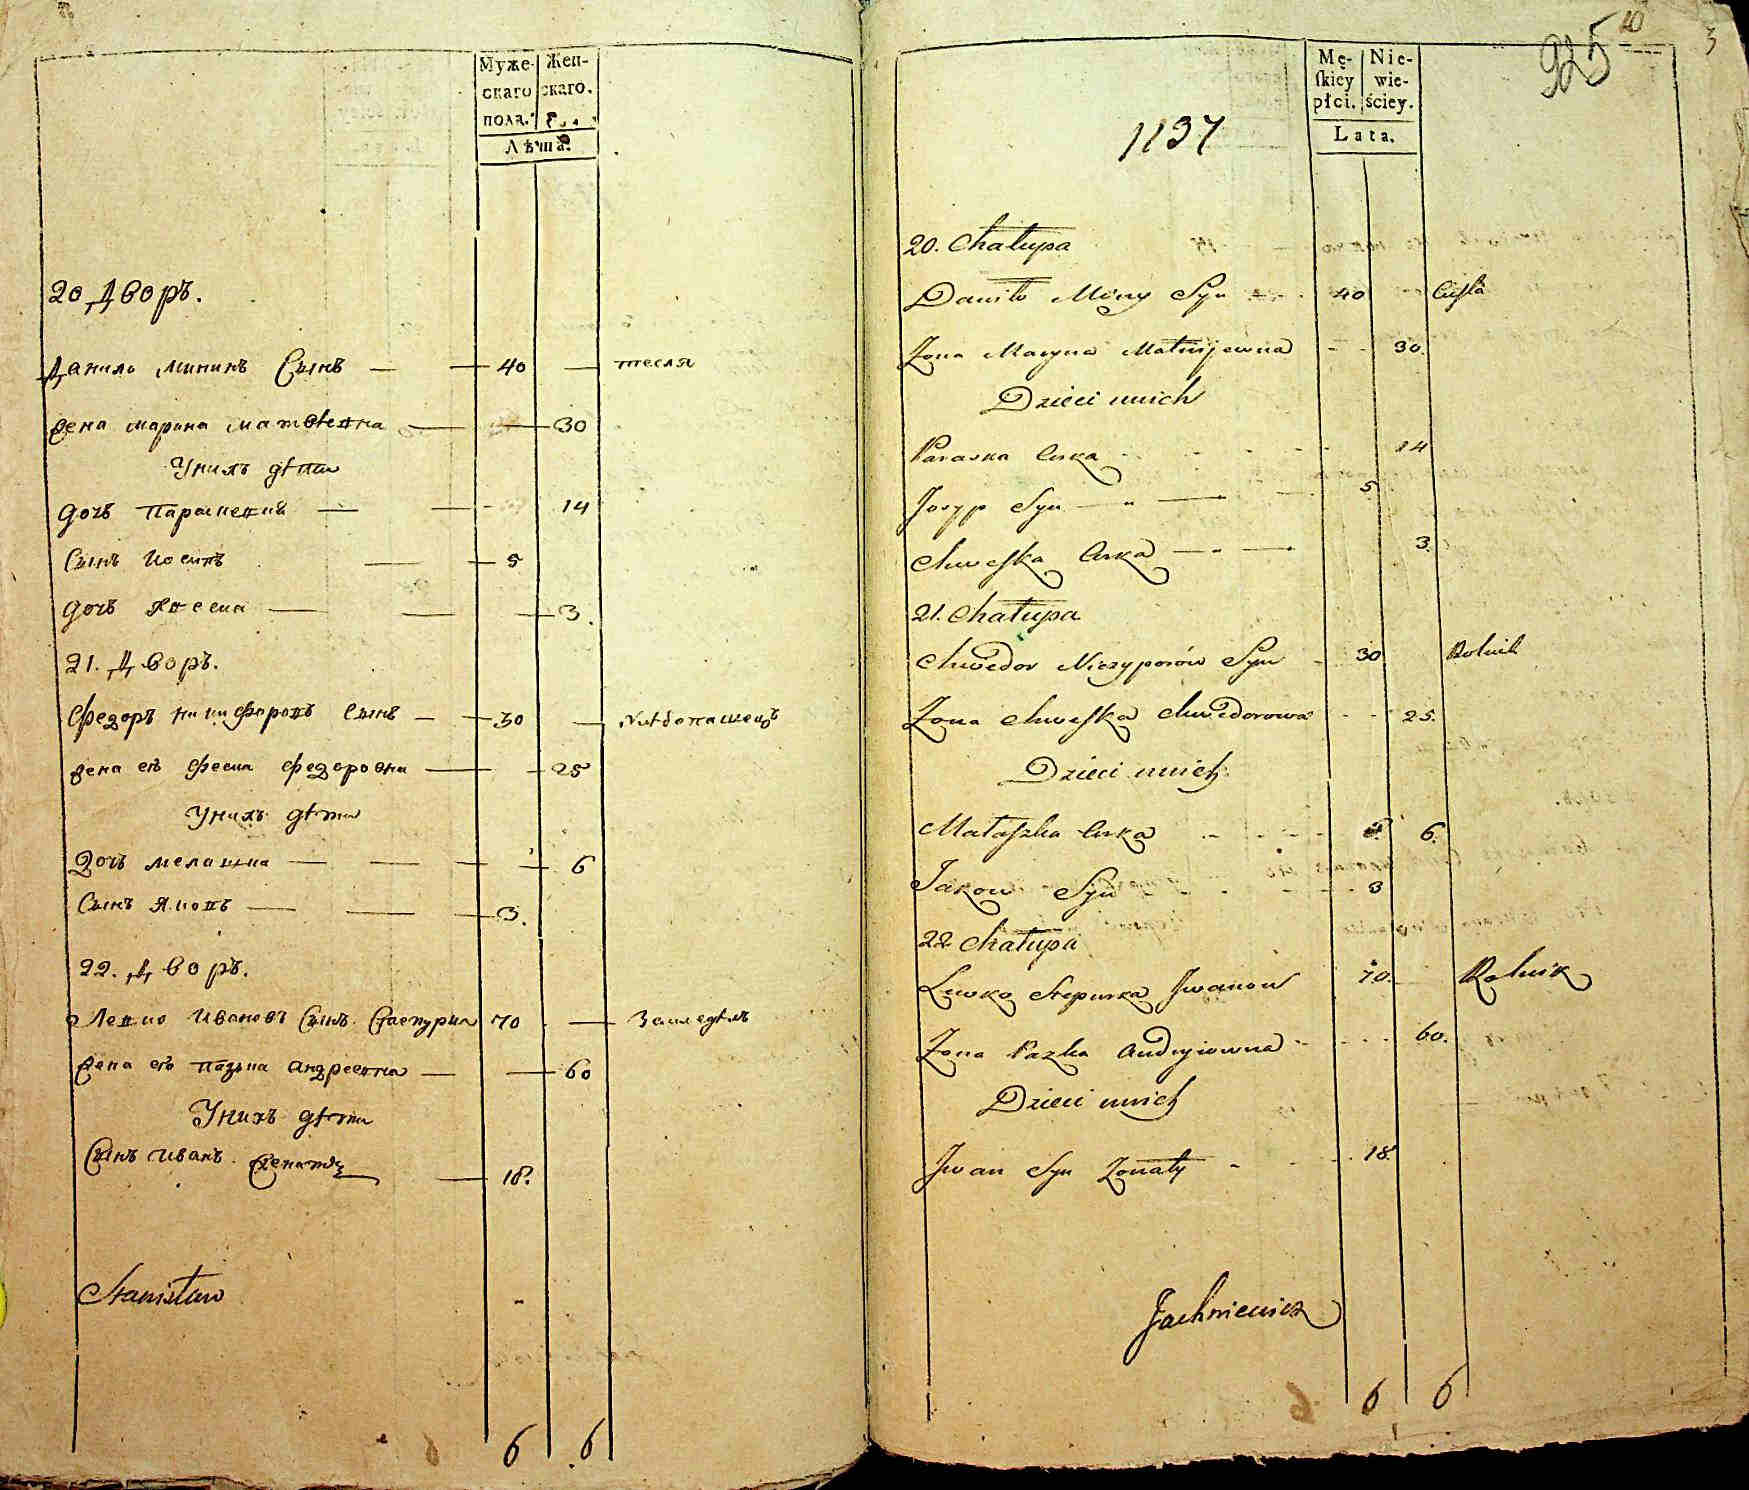 Муже- Жен-
скаго скаго.
пола.
Лѣта.
20 Дворъ.
Данило Мининъ Сынъ — 40 — тесля
Жена Марина Матвѣевна — 30
У нихъ дѣти
Дочь Парасковiя — 14
Сынъ Иосипъ — 5
Дочь — 3.
21. Дворъ.
Федоръ Никифоровъ Сынъ — 30 — хлѣбопашецъ
Жена его Феска Федоровна — 25
У нихъ дѣти
Дочь Мелашка — 6
Сынъ Яковъ — 3.
22. Дворъ.
Левко Ивановъ Сынъ 70 —
Жена его Пазька Андреевна — 60
У нихъ дѣти
Сынъ Иванъ Женатъ — 18.
Stanisław
6 6
925
10
3
Mę- Nie-
skiey wie-
płci. ściey.
Lata.
1137
20. Chałupa
Daniło Miny Syn 40 Cieśla
Żona Maryna Matwijewna 30.
Dzieci u nich
Paraska Curka 14
Josyp Syn 5
Chweska Curka 3.
21. Chałupa
Chwedor Niczyporów Syn 30 Rolnik
Żona Chweska Chwedorowa 25.
Dzieci u nich
Małaszka Curka 6.
Jakow Syn 3
22 Chałupa
Lewko Stepurka Jwanow 70. Rolnik
Żona Pazka Andryiowna 60.
Dzieci u nich
Jwan Syn Żonaty 18.
Jachniewicz
6 6